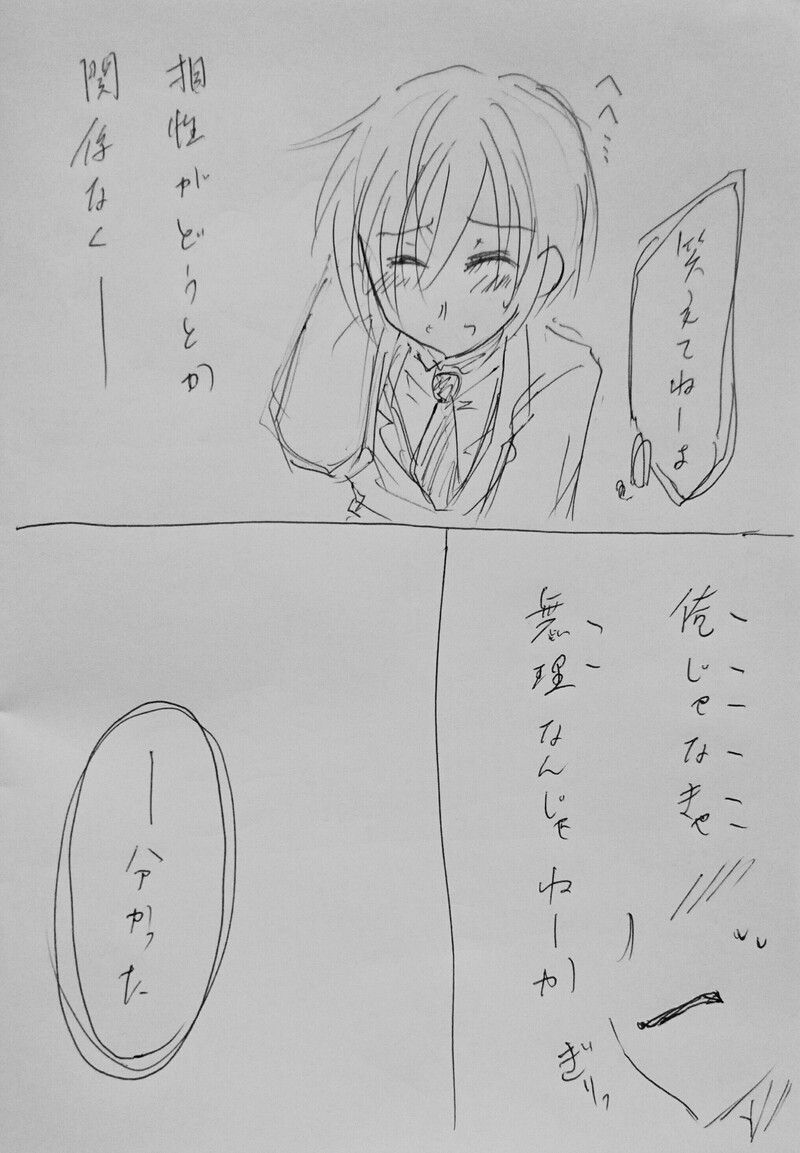 へへ…
笑えてねーよ
相性がどうとか
関係なく―
俺じゃなきゃ
無理なんじゃねーか
ぎりっ
―分かった